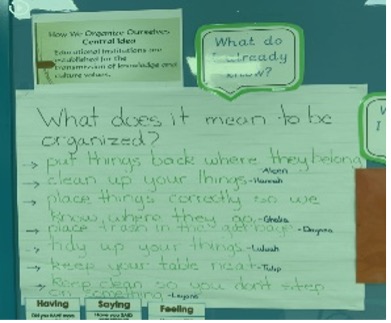 How We Organize Ourselves
Central Idea
Educational Institutions are
established for the
transmission of knowledge and
culture values.
What do
I already
know?
What does it mean to be
organized?
→ put things back where they belong
→ clean up your things - Hannah
→ place things correctly so we
know where they go. - Ghala
→ place trash in the garbage - Dayana
tidy up your things - Luluah
→ keep your table neat - Tulip
→ keep clean so you don't step
on something - Layan
Having
Saying
Feeling